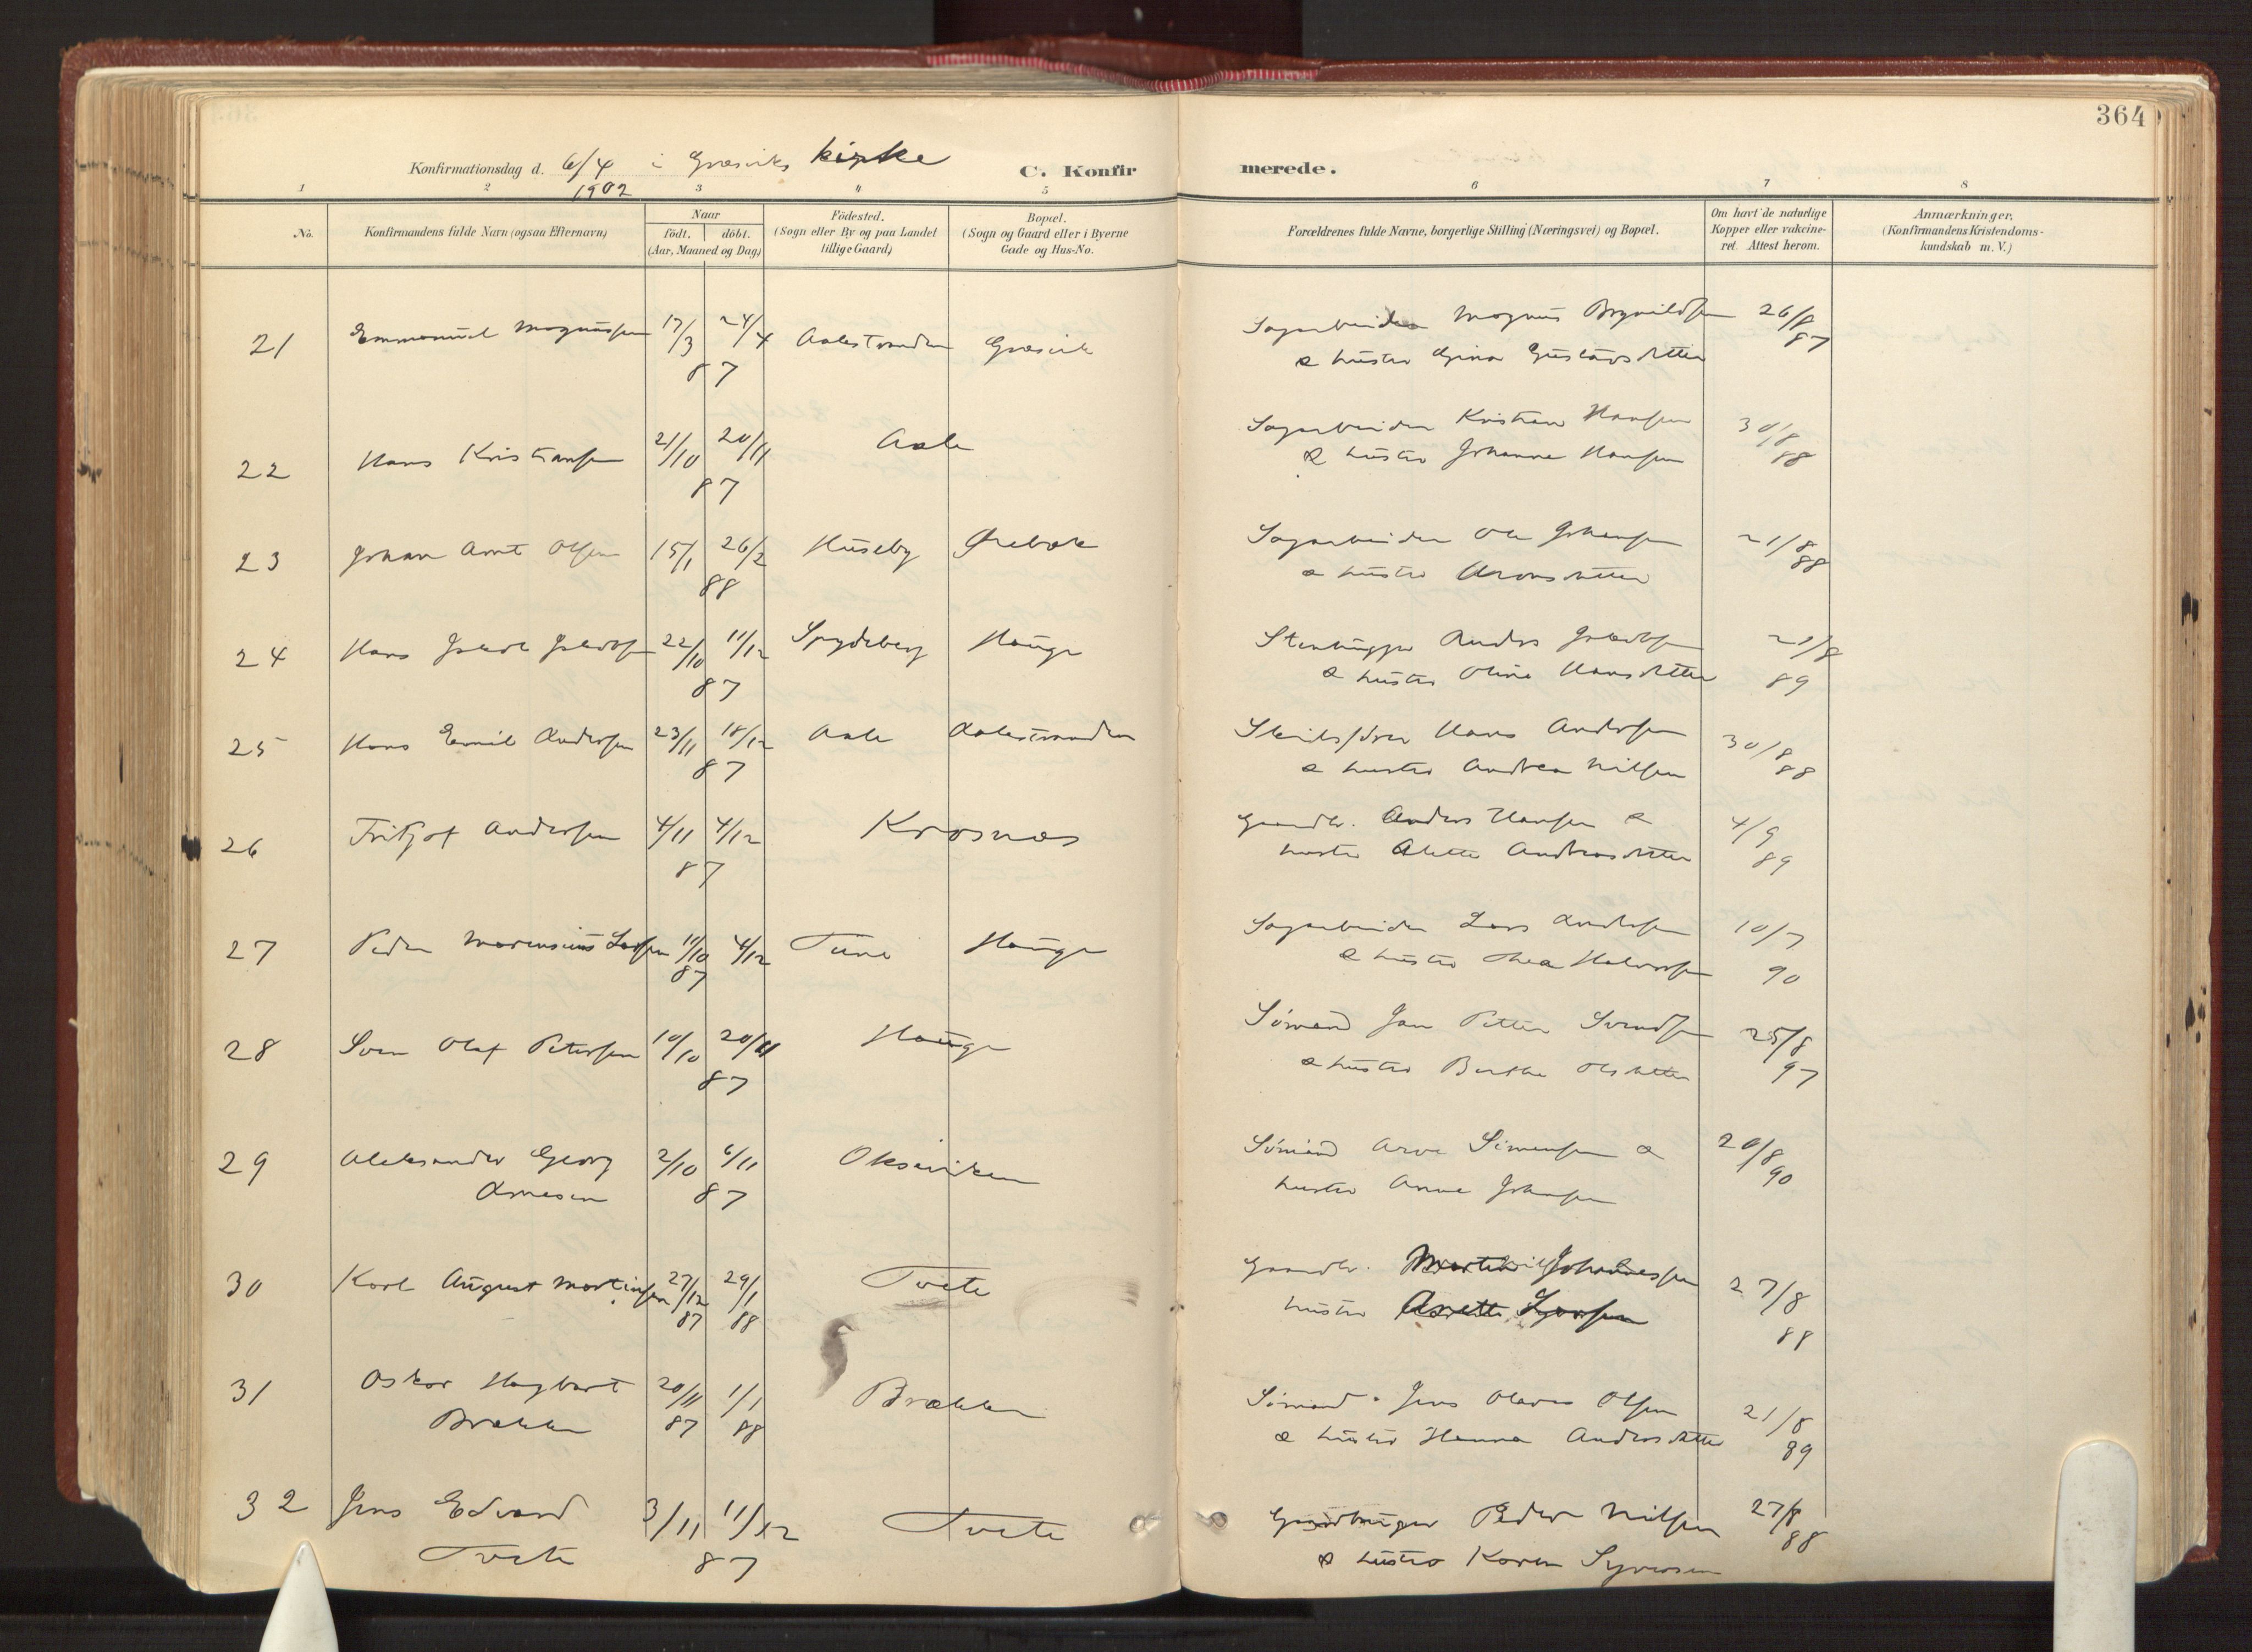 364
Konfirmationsdag d. 6/4 i Græsviks kirke
1902
C. Konfirmerede.
1 2 3 4 5 6 7 8
No.
Konfirmandens fulde Navn (ogsaa Efternavn)
Naar
födt. döbt.
(Aar, Maaned og Dag)
Födested.
(Sogn eller By og paa Landet
tillige Gaard)
Bopæl.
(Sogn og Gaard eller i Byerne
Gade og Hus-No.
Forældrenes fulde Navne, borgerlige Stilling (Næringsvei) og Bopæl.
Om havt de naturlige
Kopper eller vakcine-
ret. Attest herom.
Anmærkninger.
(Konfirmandens Kristendoms-
kundskab m. V.)
21 Emmanuel Magnussen 17/3 24/4 Aalestranden Græsvik Sagarbeider Magnus Brynildsen 26/8
87 & hustru Gina Gustavsdatter 87
22 Hans Kristiansen 21/10 20/11 Aale Sagarbeider Kristian Hansen 30/8
87 & hustru Johanne Hansen 88
23 Johan Arnt Olsen 15/1 26/2 Huseby Ørebæk Sagarbeider Ole Johansen 21/8
88 & hustru Aronsdatter 88
24 Hans Jakob Jakobsen 22/10 11/12 Spydeberg Hauge Stenhugger Anders Jakobsen 21/8
87 & hustru Oline Hansdatter 89
25 Hans Emil Andersen 23/11 18/12 Aale Aalestranden Hans Andersen 30/8
87 & hustru Andrea Nilsen 88
26 Fritjof Andersen 4/11 4/12 Krosnæs Gaardbr. Anders Hansen & 4/9
87 hustru Alette Andreasdatter 89
27 Peder Marensius Larsen 11/10 4/12 Tune Hauge Sagarbeider Lars Andersen 10/7
87 & hustru Thea Halvorsen 90
28 Sven Olaf Petersen 10/10 20/11 Hauge Sømand Jan Petter Svendsen 25/8
87 & hustru Berthe Olsdatter 97
29 Aleksander Georg 2/10 6/11 Oksviken Sømand Arne Simensen & 20/8
Arnesen 87 hustru Anne Johansen 90
30 Karl August Martinsen 27/12 29/1 Tvete Gaardbr. Martin Johannessen 27/8
87 88 hustru Anette Larsen 88
31 Oskar Hagbart 20/11 1/1 Brækken Sømand Jens Olaves Olsen 21/8
Brækken 87 88 & hustru Hanna Andersdatter 89
32 Jens Edvard 3/11 11/12 Tvete Gaardbruger Peder Nilsen 27/8
Tvete 87 & hustru Karen Syversen 88